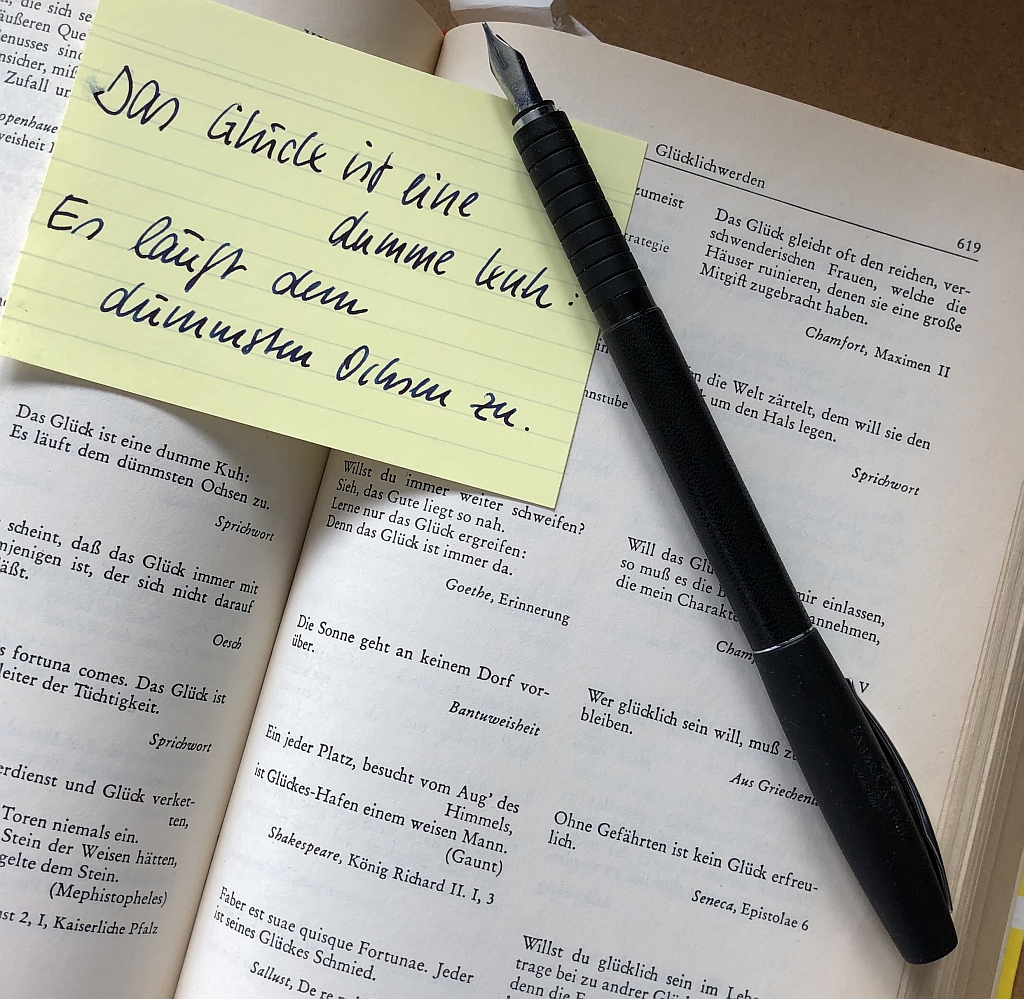 die sich se
äußeren Que
Genusses sind
nsicher, miß
Zufall ur
openhaue
weisheit
Das Glück ist eine
dumme Kuh:
Es läuft dem
dümmsten Ochsen zu.
Das Glück ist eine dumme Kuh:
Es läuft dem dümmsten Ochsen zu.
Sprichwort
scheint, daß das Glück immer mit
mjenigen ist, der sich nicht darauf
läßt.
Oesch
s fortuna comes. Das Glück ist
leiter der Tüchtigkeit.
Sprichwort
erdienst und Glück verket-
ten,
Toren niemals ein.
Stein der Weisen hätten,
gelte dem Stein.
(Mephistopheles)
ust 2, I, Kaiserliche Pfalz
Glücklichwerden
619
zumeist
rategie
nnstube
Willst du immer weiter schweifen?
Sieh, das Gute liegt so nah.
Lerne nur das Glück ergreifen:
Denn das Glück ist immer da.
Goethe, Erinnerung
Die Sonne geht an keinem Dorf vor-
über.
Bantuweisheit
Ein jeder Platz, besucht vom Aug' des
Himmels,
ist Glückes-Hafen einem weisen Mann.
(Gaunt)
Shakespeare, König Richard II. I, 3
Faber est suae quisque Fortunae. Jeder
ist seines Glückes Schmied.
Sallust, De re
Das Glück gleicht oft den reichen, ver-
schwenderischen Frauen, welche die
Häuser ruinieren, denen sie eine große
Mitgift zugebracht haben.
Chamfort, Maximen II
n die Welt zärtelt, dem will sie den
k um den Hals legen.
Sprichwort
Will das Glü mir einlassen,
so muß es die B annehmen,
die mein Charakte
Cham V
Wer glücklich sein will, muß z
bleiben.
Aus Griechenl
Ohne Gefährten ist kein Glück erfreu-
lich.
Seneca, Epistolae 6
Willst du glücklich sein im Lebe
trage bei zu andrer Glü
denn die F